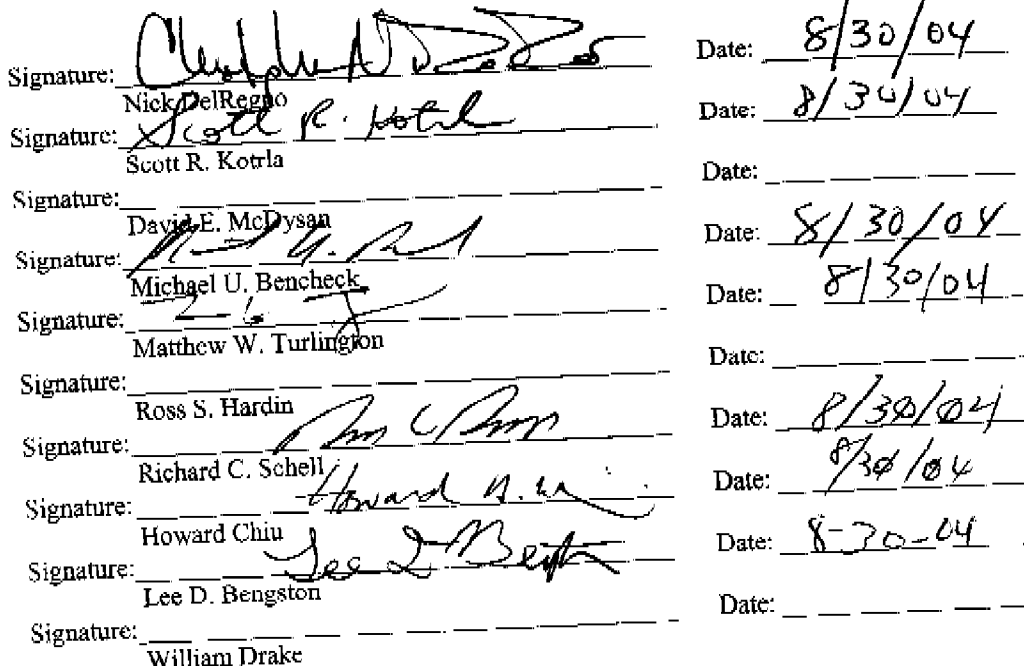 Signature: Date: 8/30/04
Nick DelRegno
Signature: Scott R. Kotrla Date: 8/30/04
Scott R. Kotrla
Signature: Date:
David E. McDysan
Signature: Date: 8/30/04
Michael U. Bencheck
Signature: Date: 8/30/04
Matthew W. Turlington
Signature: Date:
Ross S. Hardin
Signature: Date: 8/30/04
Richard C. Schell
Signature: Howard Date: 8/30/04
Howard Chiu
Signature: Lee D Date: 8-30-04
Lee D. Bengston
Signature: Date:
William Drake